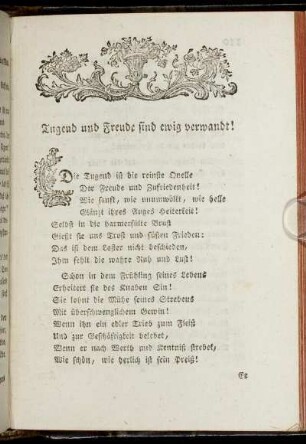 Tugend und Freude sind ewig verwandt!
Die Tugend ist die reinste Quelle
Der Freude und Zufriedenheit!
Wie sanft, wie unumwölkt, wie helle
Glänzt ihres Auges Heiterkeit!
Selbst in die harmerfüllte Brust
Gießt sie uns Trost und süßen Frieden:
Das ist dem Laster nicht beschieden,
Ihm fehlt die wahre Ruh und Lust!
Schon in dem Frühling seines Lebens
Erheitert sie des Knaben Sin!
Sie lohnt die Mühe seines Strebens
Mit überschwenglichem Gewin!
Wenn ihn ein edler Trieb zum Fleiß
Und zur Geschäftigkeit belebet,
Wenn er nach Werth und Kentniß strebet,
Wie schön, wie herlich ist sein Preiß!
Er